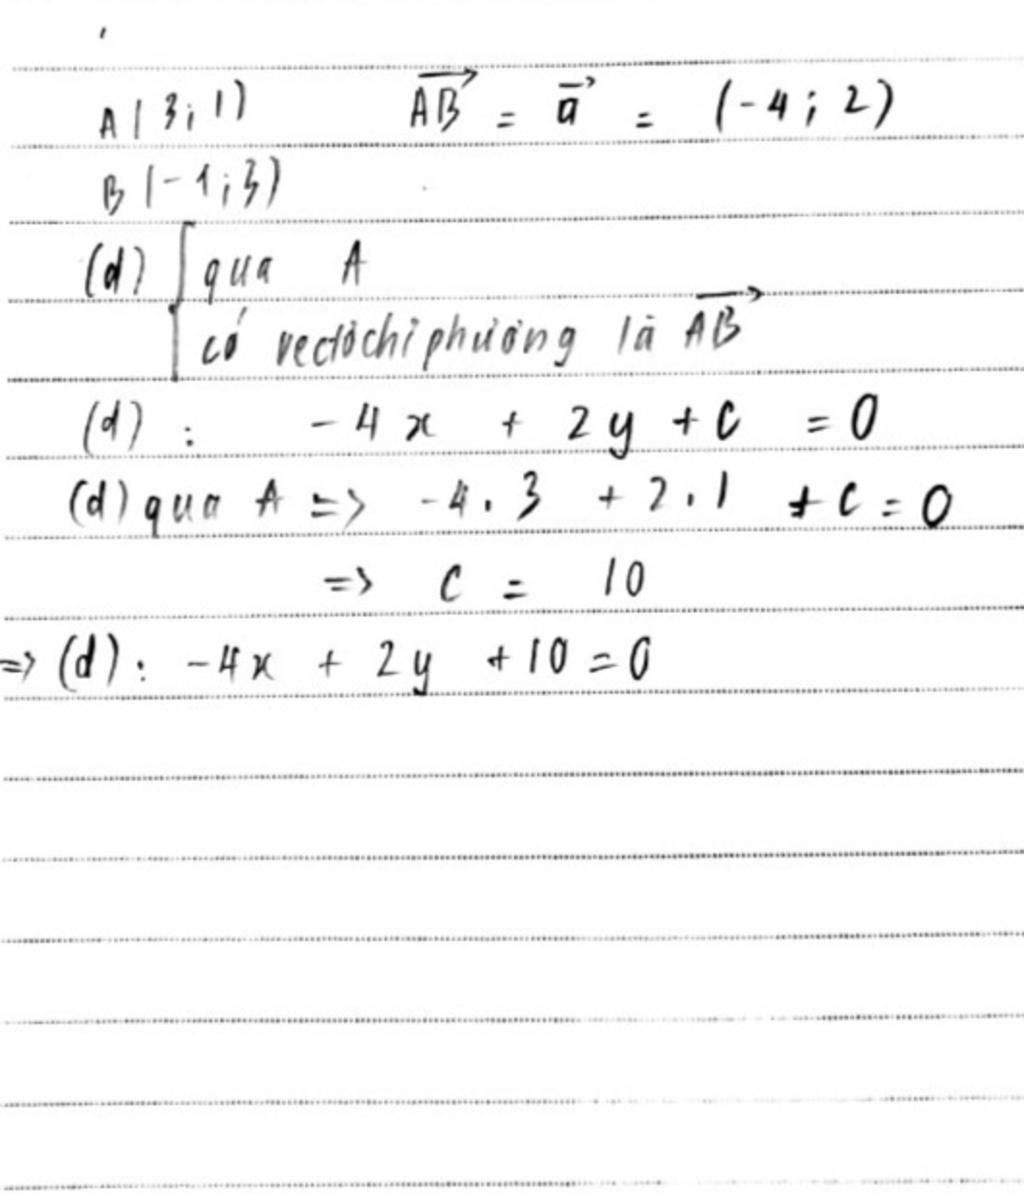 A(3;1) $\overrightarrow{AB} = \vec{a} = (-4; 2)$
B(-1;3)
(d) { qua A
có vectơ chỉ phương là $\overrightarrow{AB}$
(d): -4x + 2y + C = 0
(d) qua A => -4.3 + 2.1 + C = 0
=> C = 10
=> (d): -4x + 2y + 10 = 0